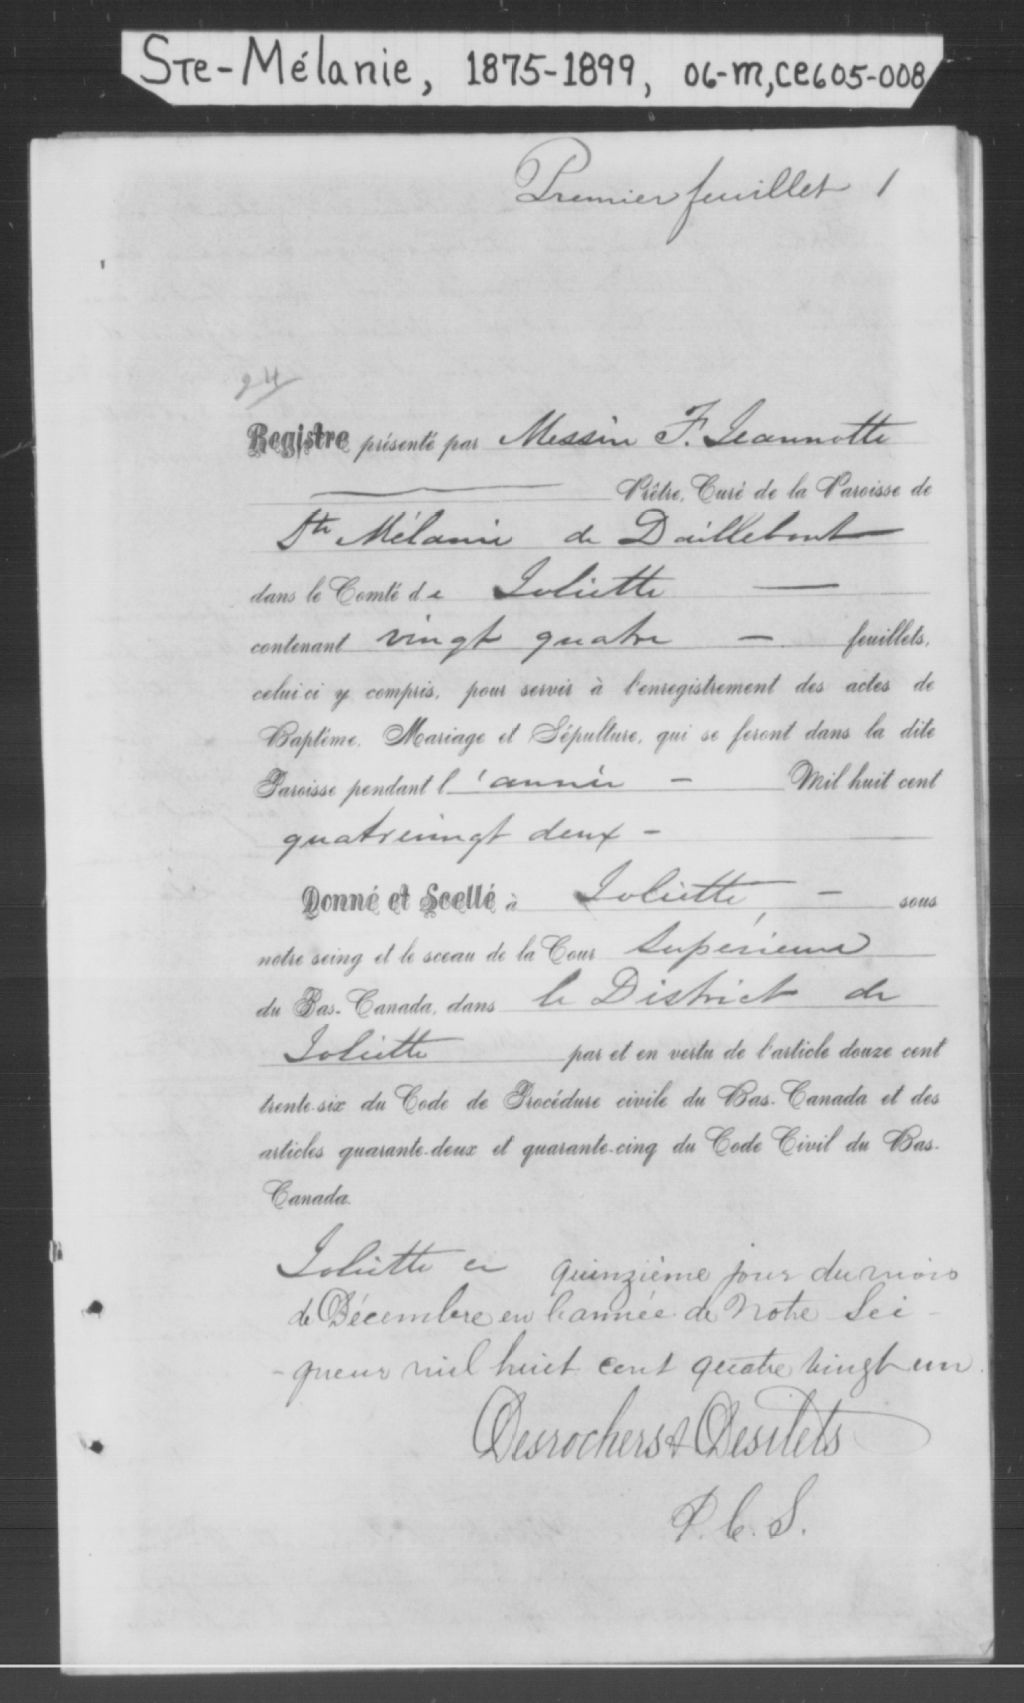 Ste-Mélanie, 1875-1899, 06-M, CE605-008
Premier feuillet 1
24
Registre présenté par Messire F. Jeannotte
Prêtre, Curé de la Paroisse de
Ste Mélanie de Daillebout
dans le Comté de Joliette
contenant vingt quatre - feuillets,
celui ci y compris, pour servir à l'enregistrement des actes de
Baptême, Mariage et Sépulture, qui se feront dans la dite
Paroisse pendant l'année - Mil huit cent
quatrevingt deux -
Donné et Scellé à Joliette, - sous
notre seing et le sceau de la Cour Supérieure
du Bas-Canada, dans le District de
Joliette par et en vertu de l'article douze cent
trente-six du Code de Procédure civile du Bas-Canada et des
articles quarante-deux et quarante-cinq du Code Civil du Bas-
Canada.
Joliette ce quinzième jour du mois
de Décembre en l'année de Notre Sei-
-gneur mil huit cent quatre vingt un.
Desrochers & Desilets
P. C. S.